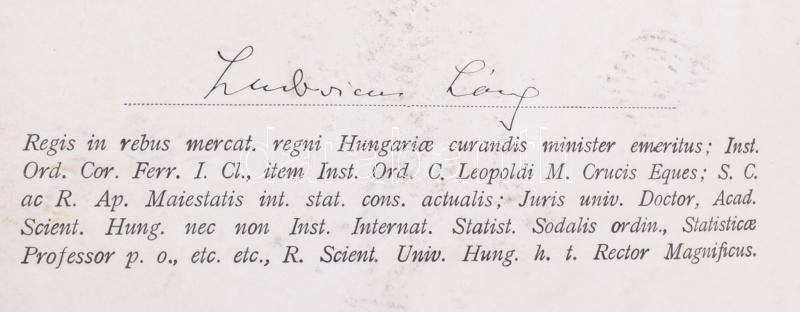 Ludovicus Láng
Regis in rebus mercat. regni Hungariæ curandis minister emeritus; Inst.
Ord. Cor. Ferr. I. Cl., item Inst. Ord. C. Leopoldi M. Crucis Eques; S. C.
ac R. Ap. Maiestatis int. stat. cons. actualis; Juris univ. Doctor, Acad.
Scient. Hung. nec non Inst. Internat. Statist. Sodalis ordin., Statisticæ
Professor p. o., etc. etc., R. Scient. Univ. Hung. h. t. Rector Magnificus.